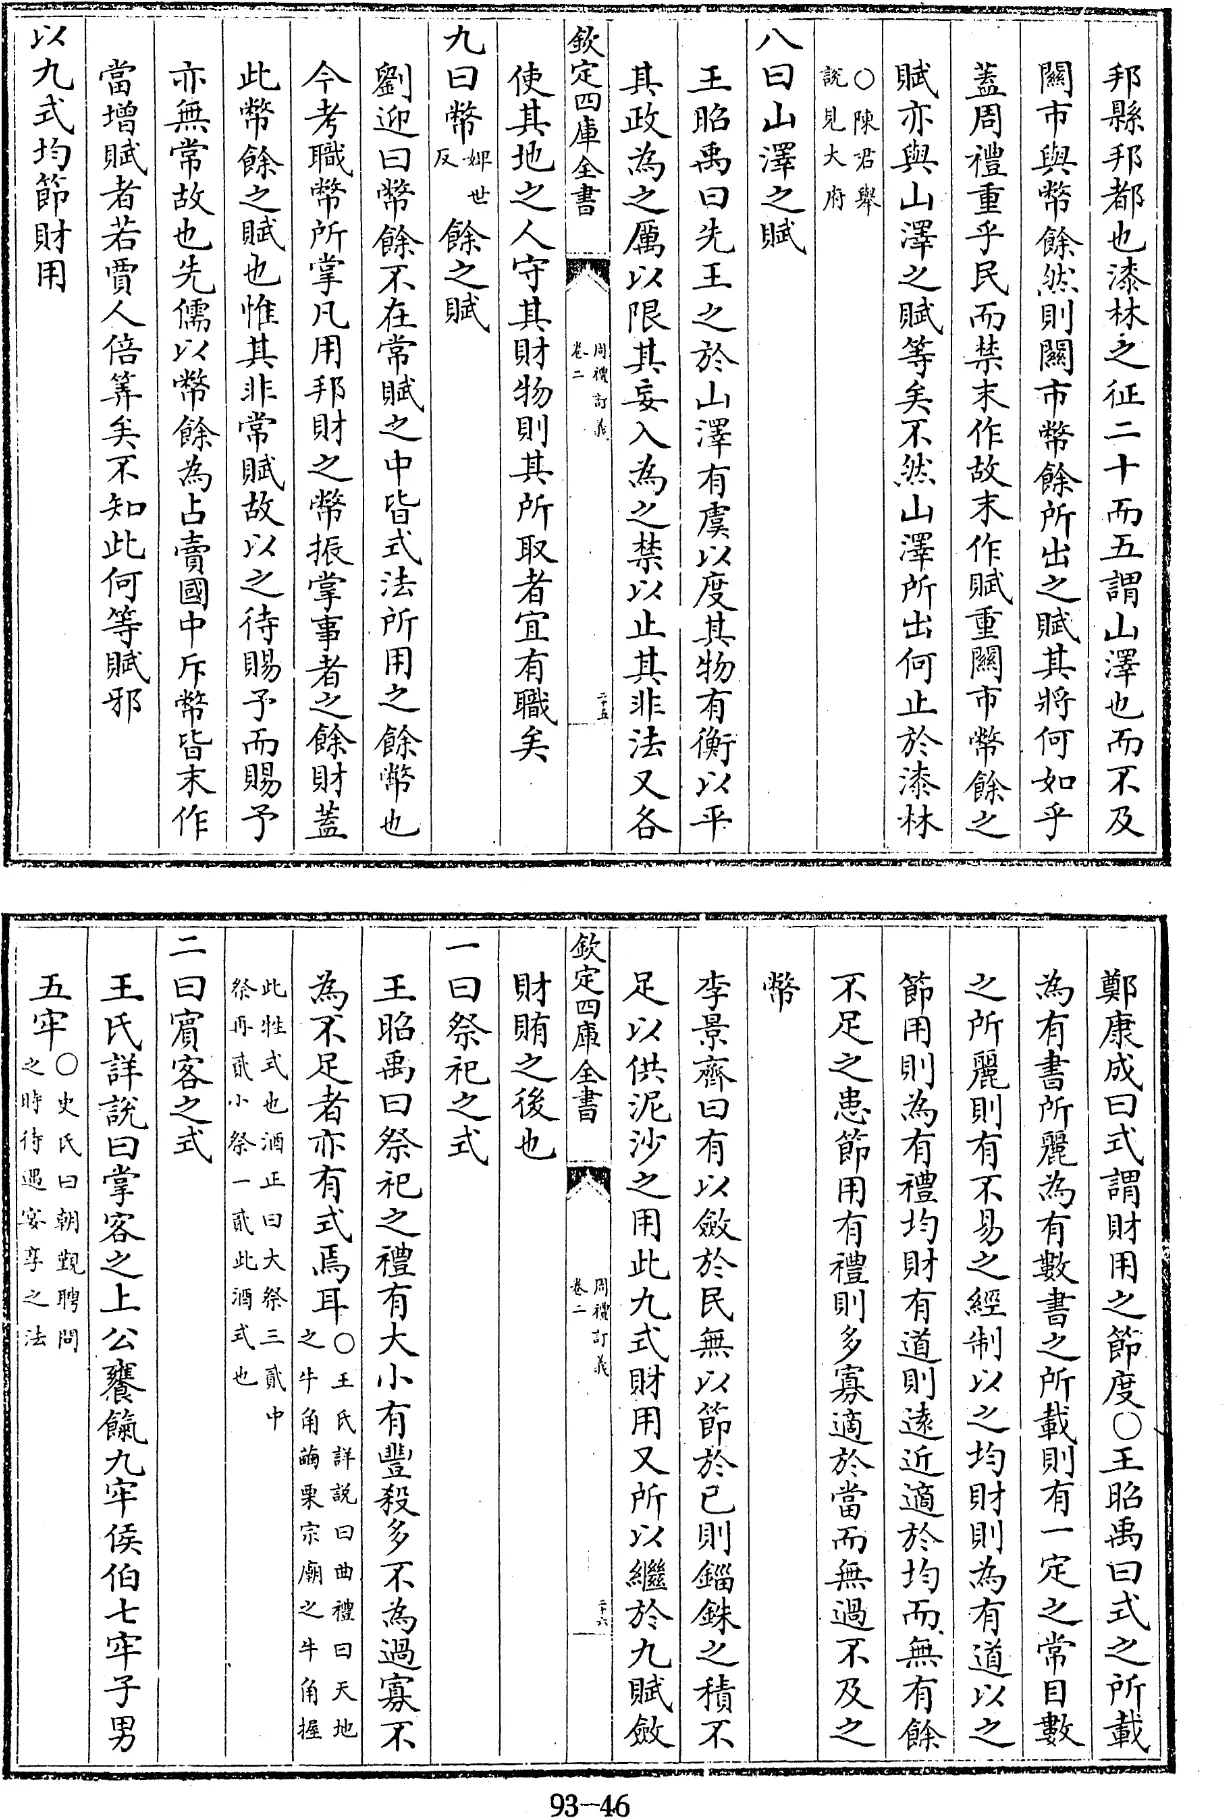 邦縣邦都也漆林之征二十而五謂山澤也而不及
關市與幣餘然則關市幣餘所出之賦其將何如乎
蓋周禮重乎民而禁末作故末作賦重關市幣餘之
賦亦與山澤之賦等矣不然山澤所出何止於漆林
○陳君舉
說見大府
八曰山澤之賦
王昭禹曰先王之於山澤有虞以度其物有衡以平
其政為之厲以限其妄入為之禁以止其非法又各
欽定四庫全書
周禮訂義
卷二
二十五
使其地之人守其財物則其所取者宜有職矣
九曰幣婢世反餘之賦
劉迎曰幣餘不在常賦之中皆式法所用之餘幣也
今考職幣所掌凡用邦財之幣振掌事者之餘財蓋
此幣餘之賦也惟其非常賦故以之待賜予而賜予
亦無常故也先儒以幣餘為占賣國中斥幣皆末作
當增賦者若賈人倍筭矣不知此何等賦邪
以九式均節財用
鄭康成曰式謂財用之節度○王昭禹曰式之所載
為有書所麗為有數書之所載則有一定之常目數
之所麗則有不易之經制以之均財則為有道以之
節用則為有禮均財有道則遠近適於均而無有餘
不足之患節用有禮則多寡適於當而無過不及之
幣
李景齊曰有以斂於民無以節於已則錙銖之積不
足以供泥沙之用此九式財用又所以繼於九賦斂
欽定四庫全書
周禮訂義
卷二
二十六
財賄之後也
一曰祭祀之式
王昭禹曰祭祀之禮有大小有豐殺多不為過寡不
為不足者亦有式焉耳○王氏詳說曰曲禮曰天地
之牛角繭栗宗廟之牛角握
此牲式也酒正曰大祭三貳中
祭再貳小祭一貳此酒式也
二曰賓客之式
王氏詳說曰掌客之上公饔餼九牢侯伯七牢子男
五牢○史氏曰朝覲聘問
之時待遇宴享之法
93-46